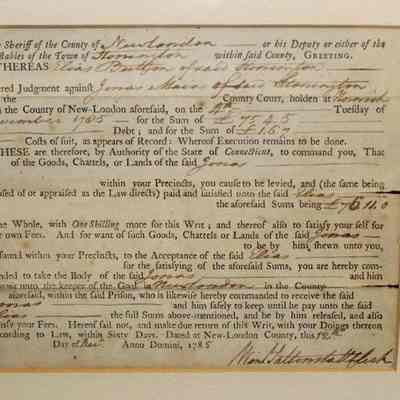 Sheriff of the County of New London or his Deputy or either of the
stables of the Town of Stonington within said County, GREETING.
WHEREAS Elias Button of said Stonington
ered Judgment against Jonas Main of said Stonington
the County Court, holden at Norwich
n the County of New-London aforesaid, on the 4th Tuesday of
vember 1785 — for the Sum of £7..4.5
Debt; and for the Sum of £1.6.7
Costs of suit, as appears of Record: Whereof Execution remains to be done.
THESE are therefore, by Authority of the State of Connecticut, to command you, That
of the Goods, Chattels, or Lands of the said Jonas
within your Precincts, you cause to be levied, and (the same being
sed of or appraised as the Law directs) paid and satisfied unto the said Elias
the aforesaid Sums being £
he Whole, with One Shilling more for this Writ; and thereof also to satisfy your self for
r own Fees. And for want of such Goods, Chattels or Lands of the said Jonas
to be by him shewn unto you,
found within your Precincts, to the Acceptance of the said Elias
for the satisfying of the aforesaid Sums, you are hereby com-
nded to take the Body of the said Jonas and him
unto the keeper of the Goal New London in the County
aforesaid, within the said Prison, who is likewise hereby commanded to receive the said
Jonas and him safely to keep until he pay unto the said
Elias the full Sums above-mentioned, and be by him released, and also
tisfy your Fees. Hereof fail not, and make due return of this Writ, with your Doings thereon
cording to Law, within Sixty Days. Dated at New-London County, this
Day of Decr. Anno Domini, 1785
Clerk